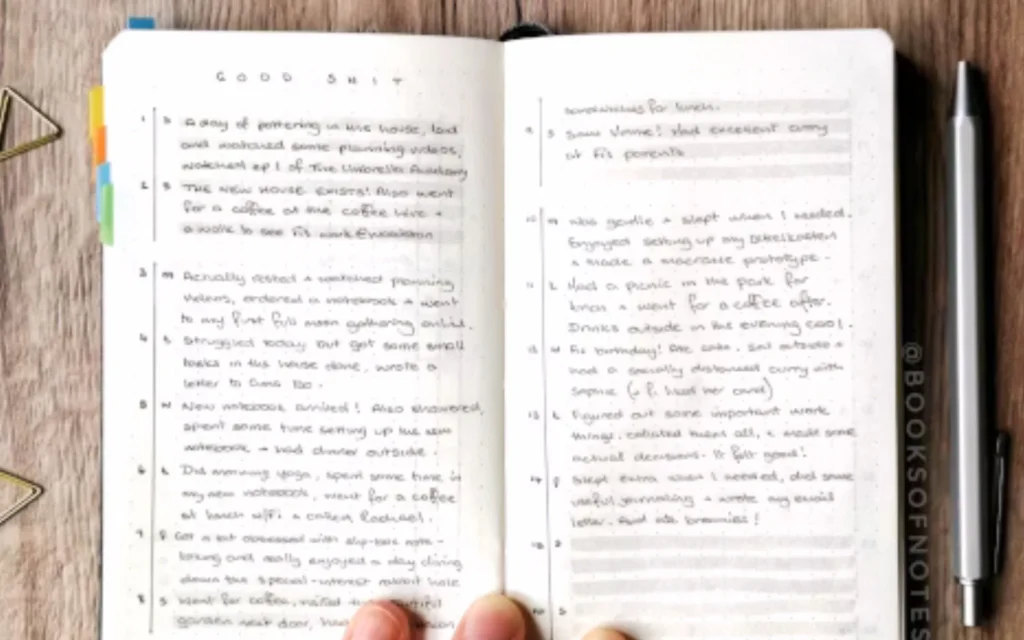 GOOD SHIT
1 S A day of pottering in the house, laid
and watched some planning videos,
watched ep 1 of The Umbrella Academy
2 S THE NEW HOUSE EXISTS! Also went
for a coffee at the coffee hive +
a walk to see Fi's work @
3 M Actually rested + watched planning
videos, ordered a notebook + went
to my first full moon gathering online.
4 t Struggled today but got some small
tasks in the house done, wrote a
letter to too.
5 W New notebook arrived! Also showered,
spent some time setting up the new
notebook + had dinner outside.
6 t Did morning yoga, spent some time in
my new notebook, went for a coffee
at lunch w/Fi + called Rachael.
7 F Got a bit obsessed with slip-box note-
taking and really enjoyed a day diving
down the special-interest rabbit hole
8 S Went for coffee, visited
garden next door, had
sandwiches for lunch.
9 S Saw Vinnie! Had excellent curry
at Fi's parents
10 M Was gentle + slept when I needed.
Enjoyed setting up my Zettelkasten
+ made a macrame prototype.
11 t Had a picnic in the park for
lunch + went for a coffee after.
Drinks outside in the evening cool.
12 W Fi's birthday! Ate cake, sat outside +
had a socially distanced curry with
Sophie (+ Fi liked her card)
13 t Figured out some important work
things, collated them all, + made some
actual decisions. It felt good!
14 F Slept extra when I needed, did some
useful journaling + wrote my email
letter. And ate brownies!
15 S
16 S
@BOOKSOFNOTES